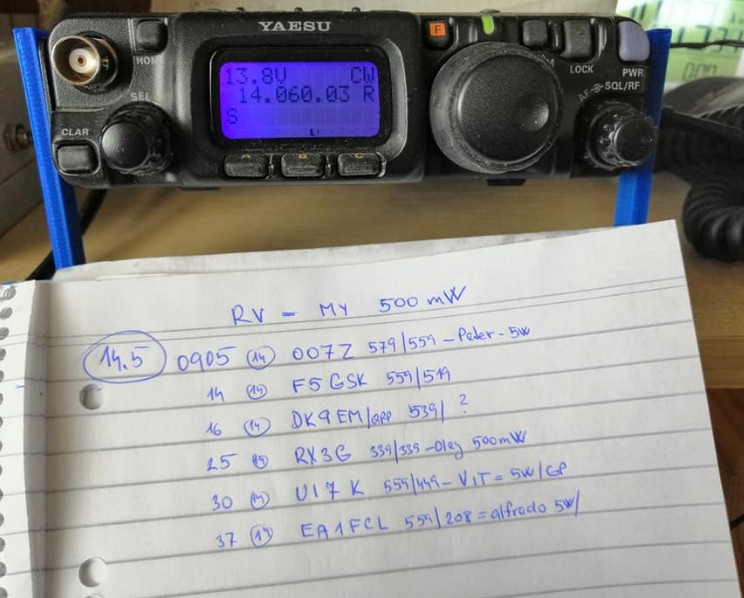 YAESU
F
HOME
LOCK
PWR
SEL
AF-SQL/RF
CLAR
13.8V CW
14.060.03 R
S
A B C
RV = MY 500 mW
14.5 0905 14 OO7Z 579/559 - Peter - 5W
14 14 F5GSK 559/519
16 14 DK9EM/QRP 539/ ?
25 RX3G 339/339 - Oleg 500mW
30 14 UI7K 559/449 - VIT = 5W/GP
37 14 EA1FCL 559/208 = alfredo 5W/